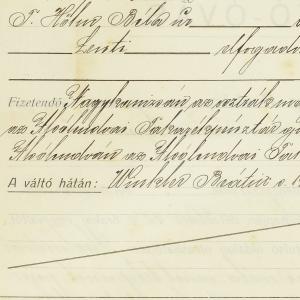 T. Hóhn Béla úr
Lenti elfogadó
Fizetendő Nagykanizsán az osztrák ma
az Alsólendvai Takarékpénztár
Alsólendván az Alsólendvai Tak
A váltó hátán: Winkler